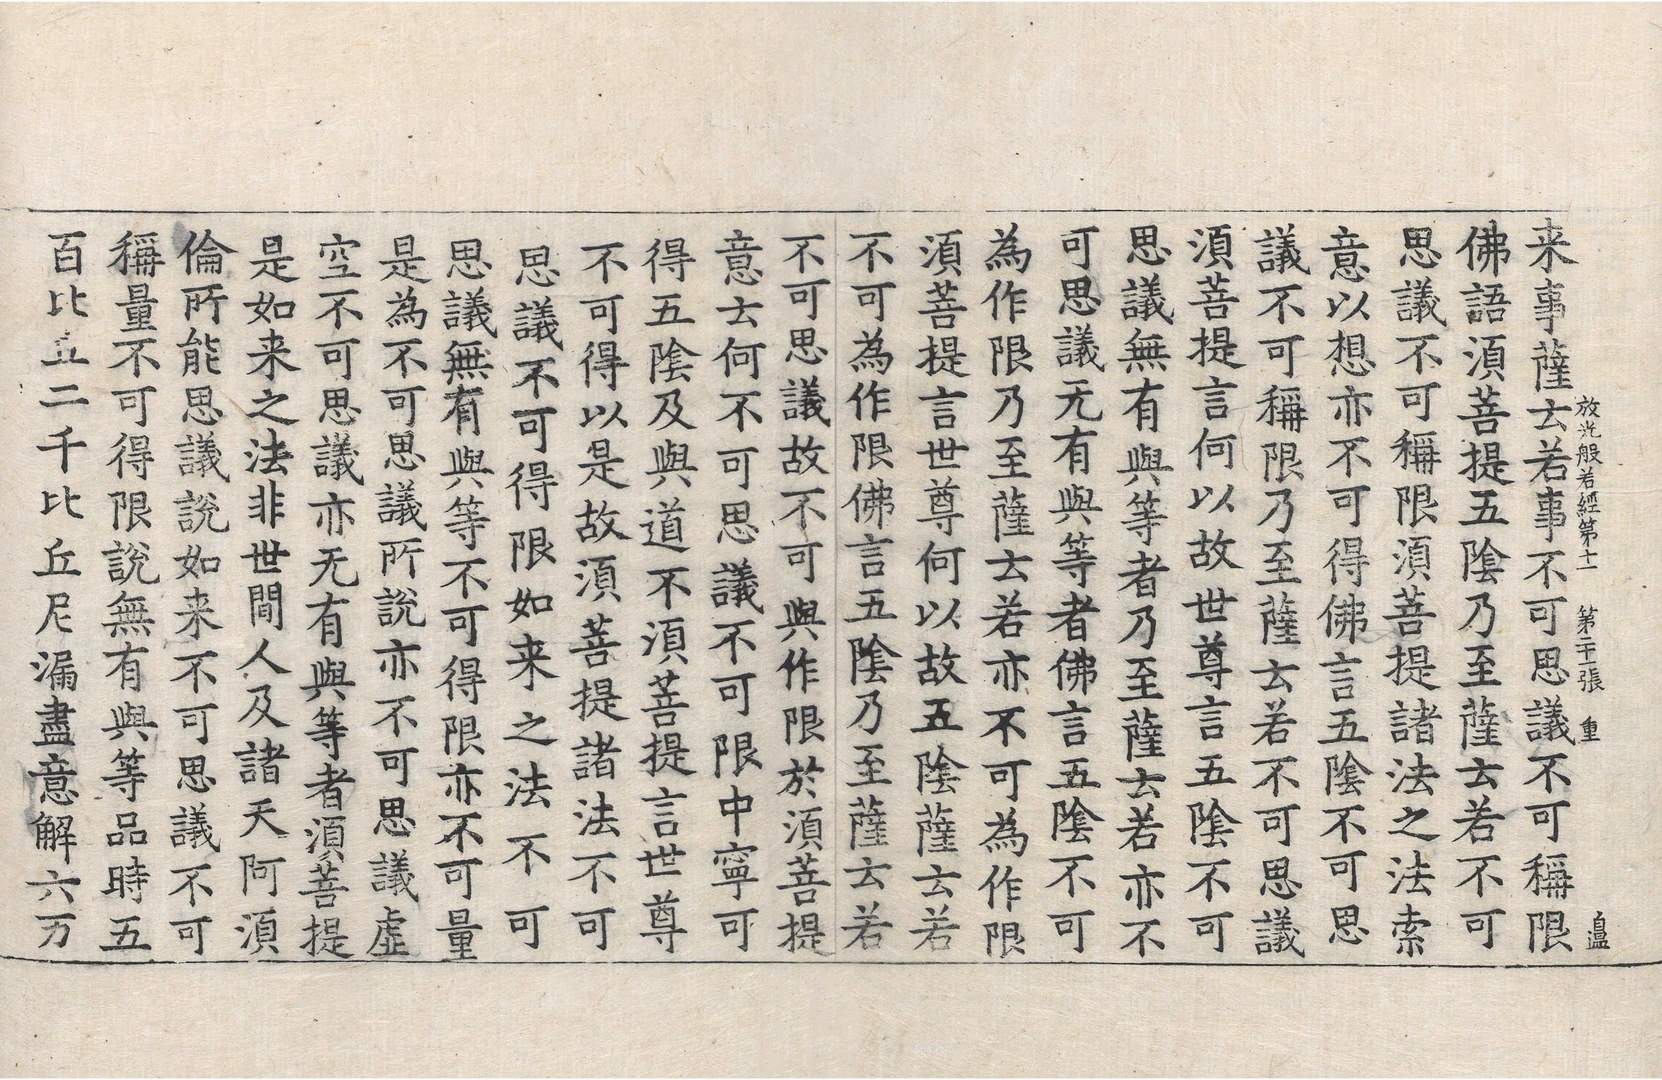 放光般若經第十一 第二十一張 重
来事薩云若事不可思議不可稱限
佛語湏菩提五陰乃至薩云若不可
思議不可稱限湏菩提諸法之法索
意以想亦不可得佛言五陰不可思
議不可稱限乃至薩云若不可思議
湏菩提言何以故世尊言五陰不可
思議無有與等者乃至薩云若亦不
可思議无有與等者佛言五陰不可
為作限乃至薩云若亦不可為作限
湏菩提言世尊何以故五陰薩云若
不可為作限佛言五陰乃至薩云若
不可思議故不可與作限於湏菩提
意云何不可思議不可限中寧可
得五陰及與道不湏菩提言世尊
不可得以是故湏菩提諸法不可
思議不可得限如来之法不可
思議無有與等不可得限亦不可量
是為不可思議所說亦不可思議虛
空不可思議亦无有與等者湏菩提
是如来之法非世間人及諸天阿湏
倫所能思議說如来不可思議不可
稱量不可得限說無有與等品時五
百比丘二千比丘尼漏盡意解六万